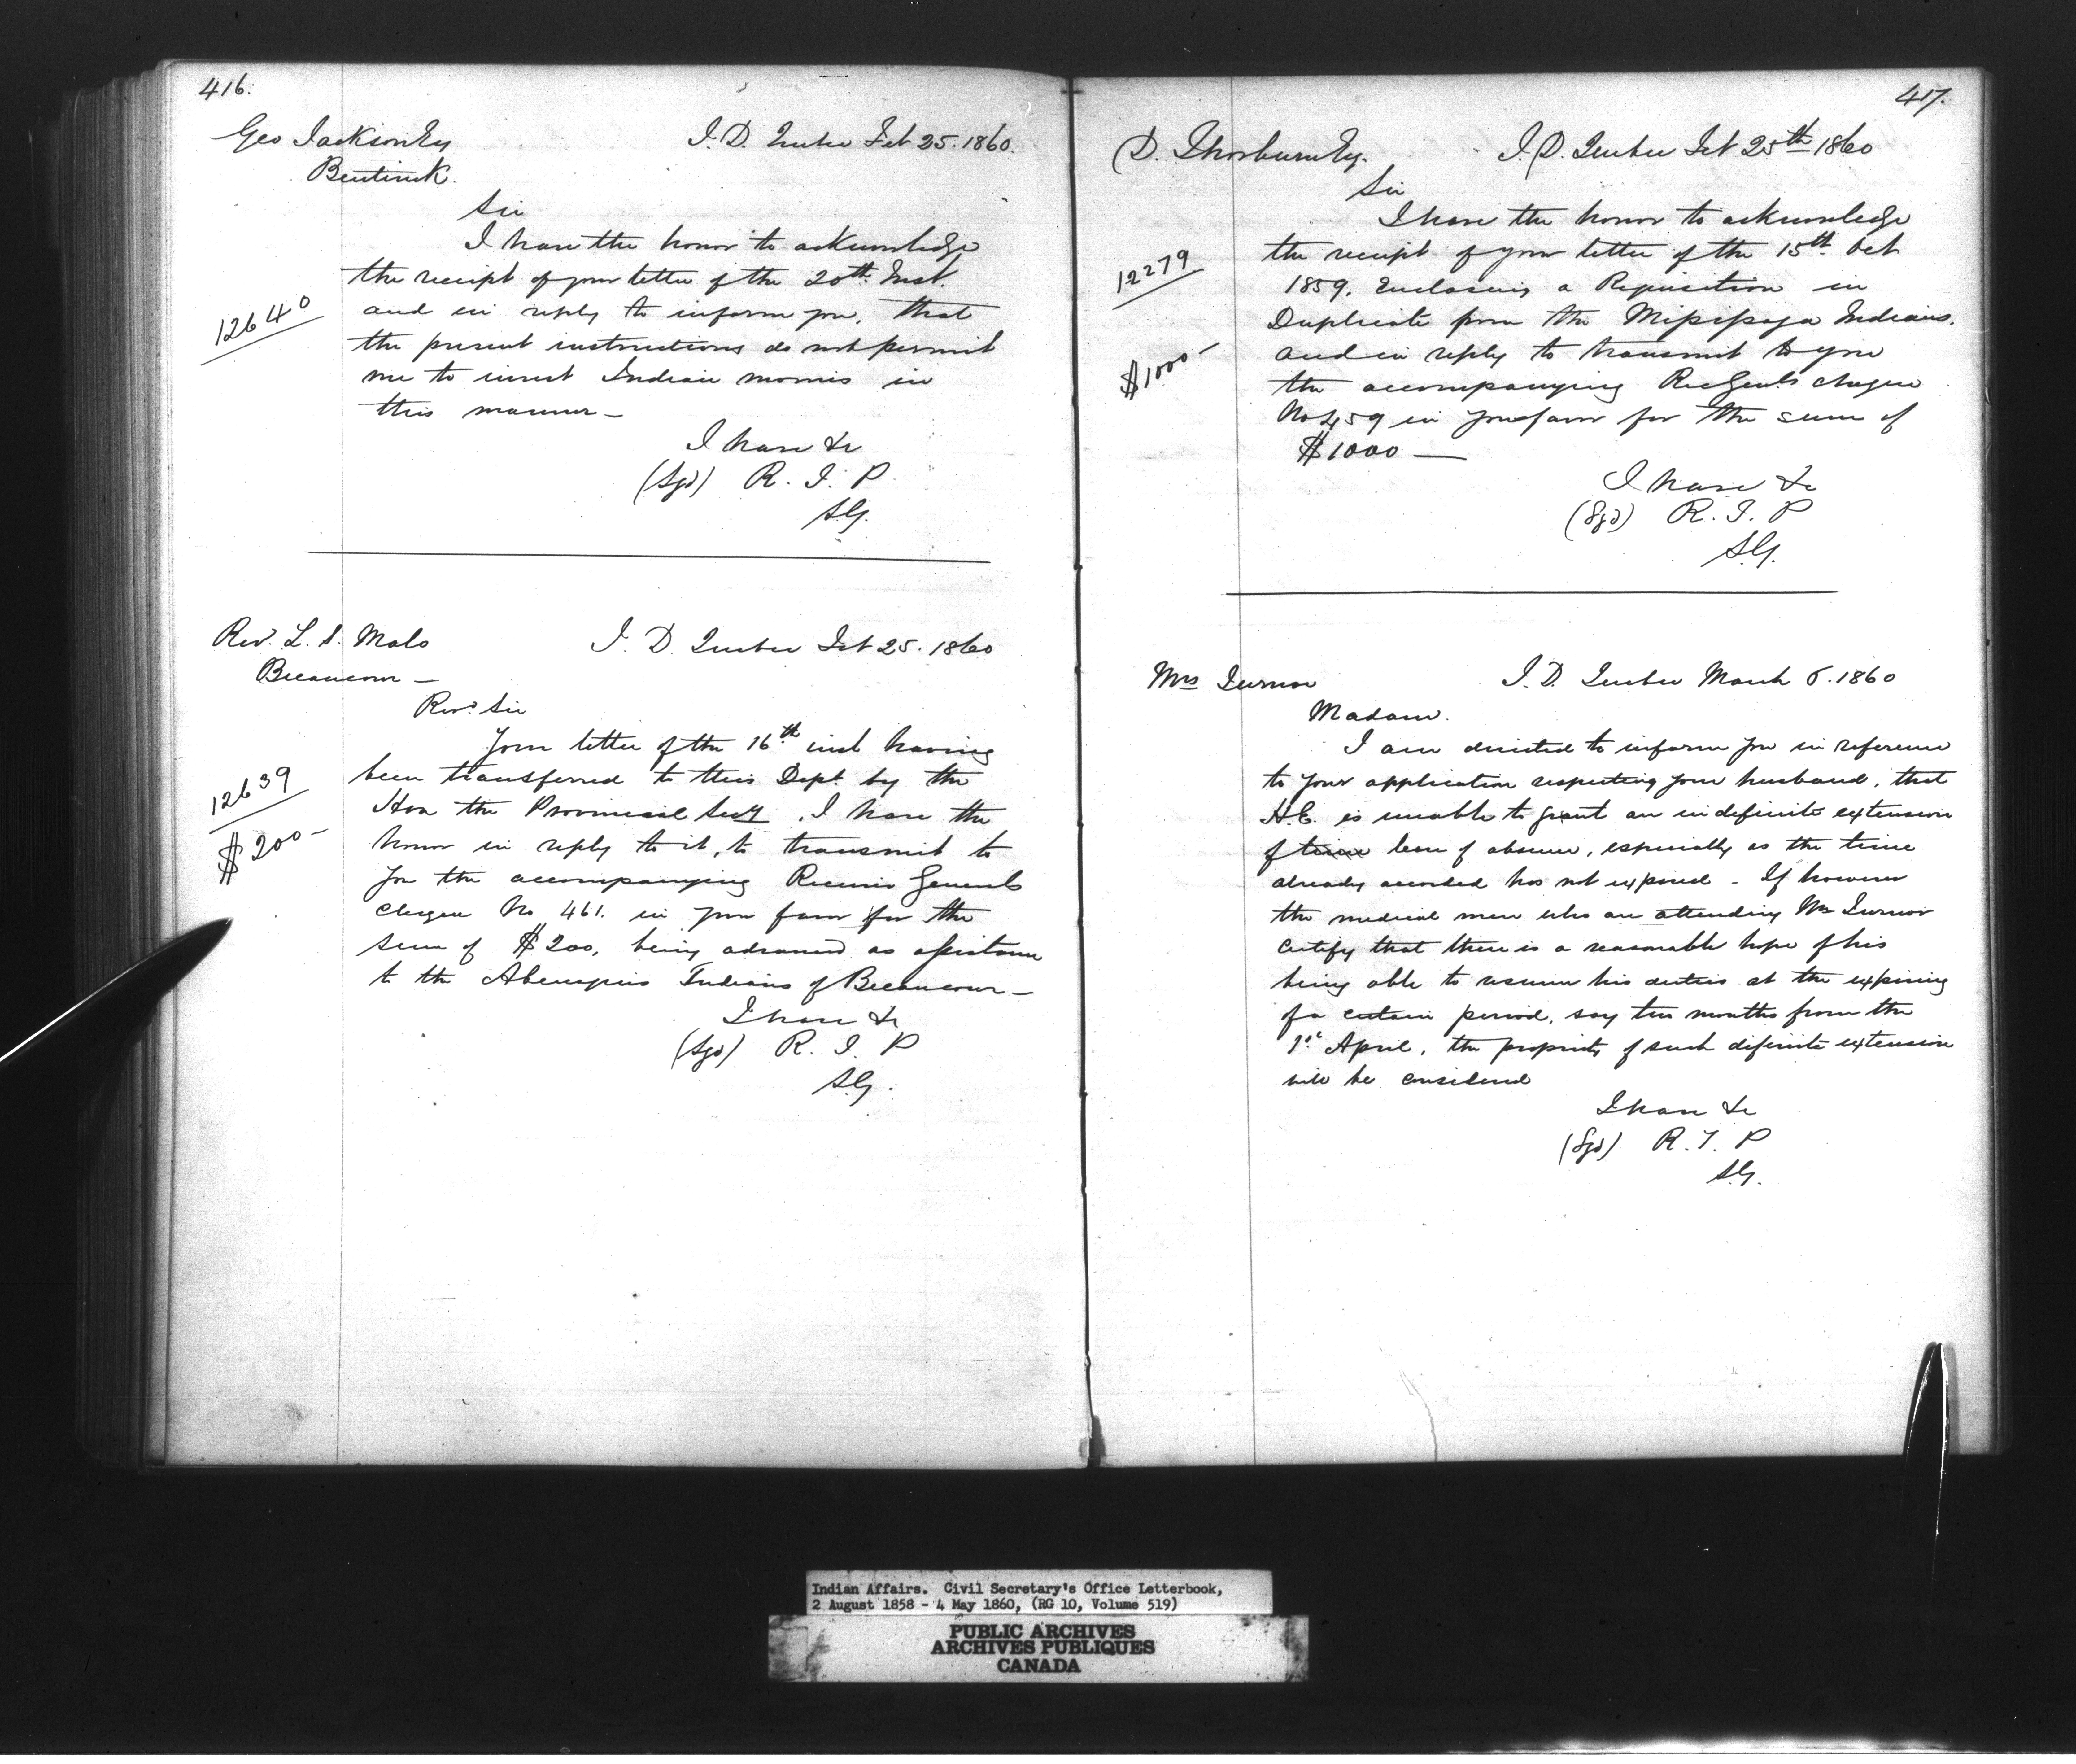 416.
Geo Jackson Esq
I. D. Quebec Feb 25. 1860.
Bentinck.
Sir
I have the honor to acknowledge
the receipt of your letter of the 20th Inst.
12640
and in reply to inform you, that
the present instructions do not permit
me to invest Indian monies in
this manner —
I have &c
(Sgd) R. T. P
S.G.
Rev. L. S. Malo
I. D. Quebec Feb 25. 1860
Becancour —
Revd Sir
Your letter of the 16th inst having
been transferred to this Dept. by the
12639
Hon the Provincial Secy, I have the
$200 —
honor in reply to it, to transmit to
you the accompanying Receiver Generals
cheque No 461. in your favor for the
sum of $200, being advanced as assistance
to the Abenaquis Indians of Becancour —
I have &c
(Sgd) R. T. P
S.G.
417.
D. Thorburn Esq.
I. D. Quebec Feb 25th 1860
Sir
I have the honor to acknowledge
the receipt of your letter of the 15th Oct
12279
1859, Enclosing a Requisition in
Duplicate from the Missisaga Indians.
$1000 —
and in reply to transmit to you
the accompanying Rec Genls cheque
No 459 in your favor for the sum of
$1000 —
I have &c
(Sgd) R. T. P
S.G.
Mrs Turnor
I. D. Quebec March 6. 1860
Madam.
I am directed to inform you in reference
to your application respecting your husband, that
H.E. is unable to grant an indefinite extension
of time leave of absence, especially as the time
already accorded has not expired — If however
the medical men who are attending Mr Turnor
certify that there is a reasonable hope of his
being able to resume his duties at the expiring
of a certain period, say two months from the
1st April, the propriety of such definite extension
will be considered
I have &c
(Sgd) R. T. P
S.G.
Indian Affairs. Civil Secretary's Office Letterbook,
2 August 1858 - 4 May 1860, (RG 10, Volume 519)
PUBLIC ARCHIVES
ARCHIVES PUBLIQUES
CANADA